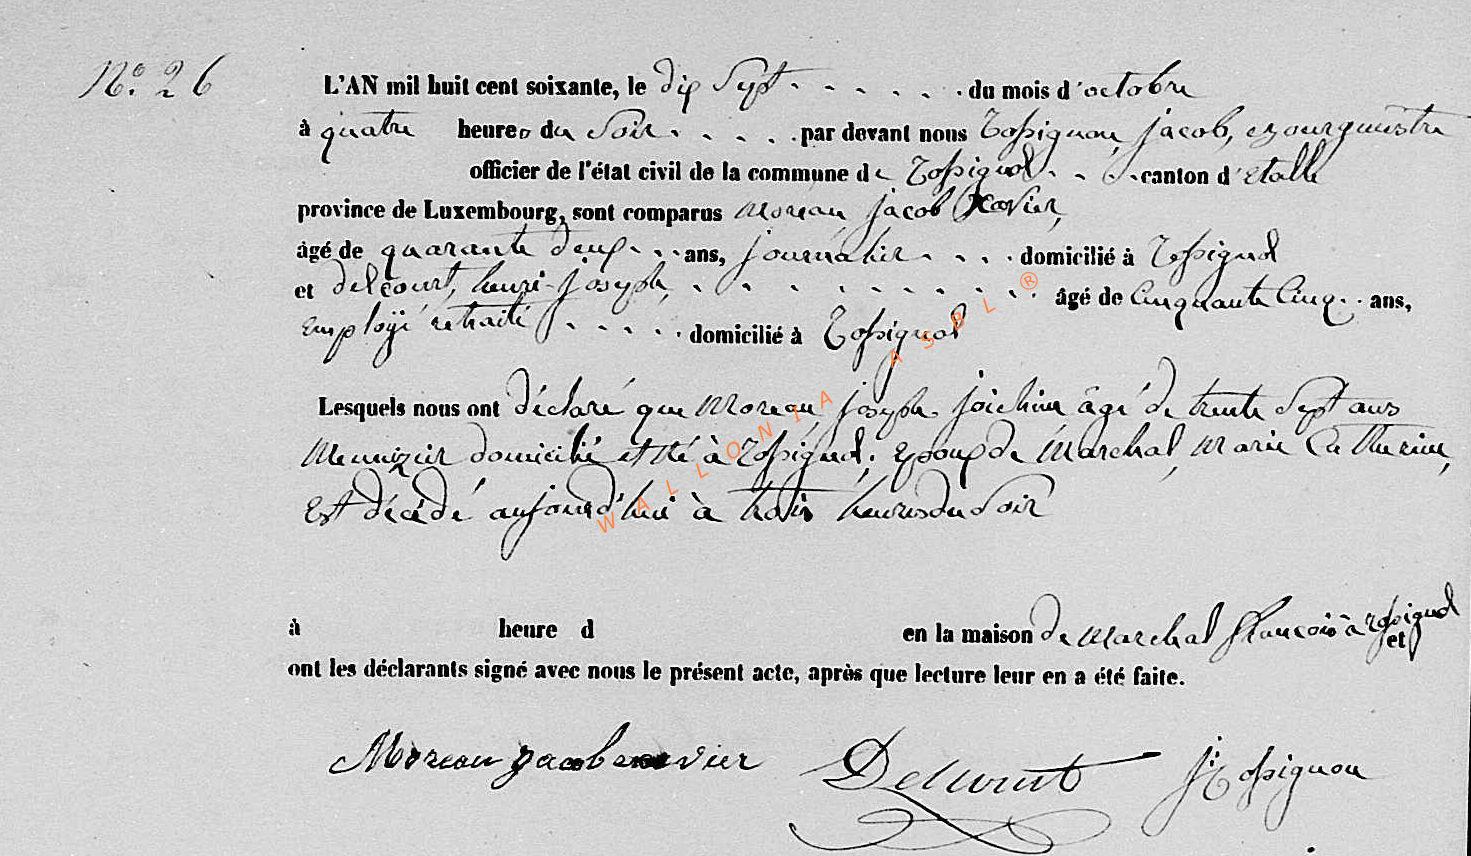 N.º 26
L'AN mil huit cent soixante, le dix Sept . . . . . . du mois d'octobre
à quatre heures du Soir . . . . . par devant nous Rossignon, Jacob, Bourguestre
officier de l'état civil de la commune de Rossignol . . . . canton d'Etalle
province de Luxembourg, sont comparus Moreau, Jacob Xavier,
âgé de quarante deux . . . ans, journalier . . . . domicilié à Rossignol
et delcourt, henri-Joseph, . . . . . . . . . . . âgé de Cinquante Cinq . . ans,
Employé retraité . . . . . domicilié à Rossignol
Lesquels nous ont déclaré que Moreau, Joseph Joichim âgé de trente Sept ans
Menuizier domicilié et né à Rossignol, Epoux de Marchal, Marie Catherine,
Est décédé aujourd'hui à trois heures du Soir
à heure d en la maison de Marchal francois à Rossignol et
ont les déclarants signé avec nous le présent acte, après que lecture leur en a été faite.
Moreau Jacob xavier Delcourt J: Rossignon
WALLONIA ASBL ®